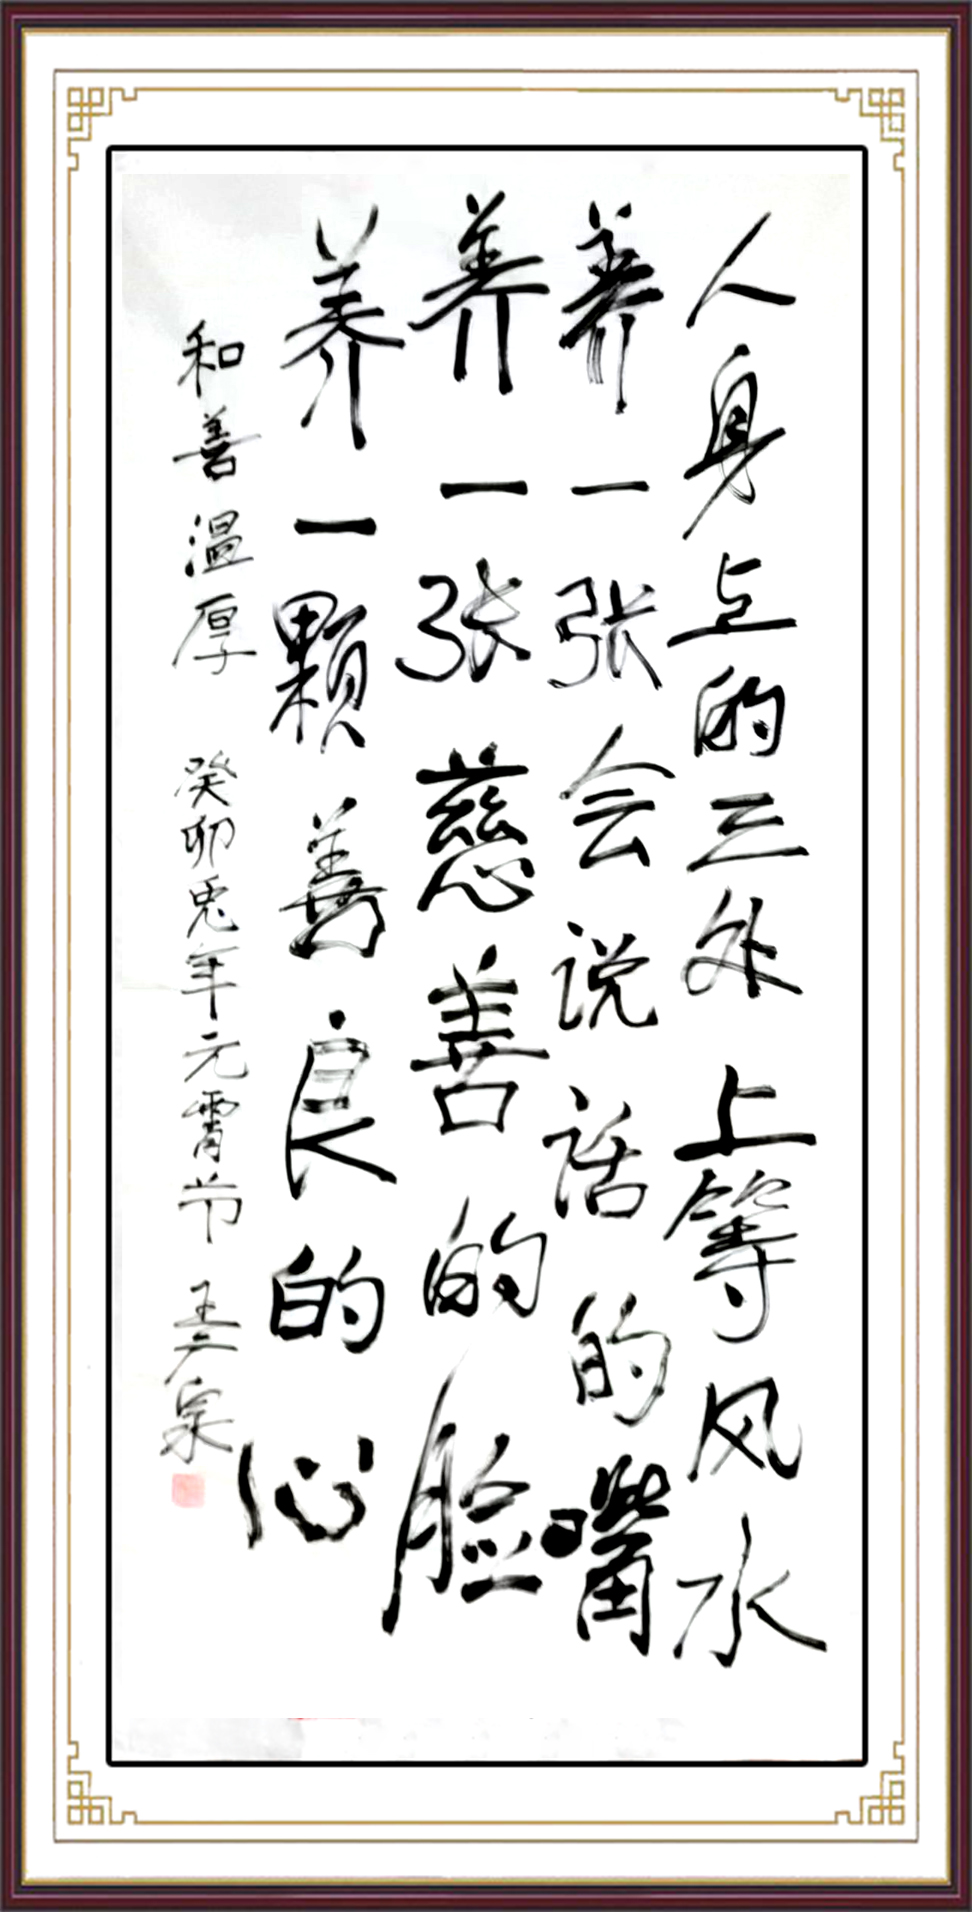 人身上的三处上等风水
养一张会说话的嘴
养一张慈善的脸
养一颗善良的心
和善温厚 癸卯兔年元宵节 王广泉